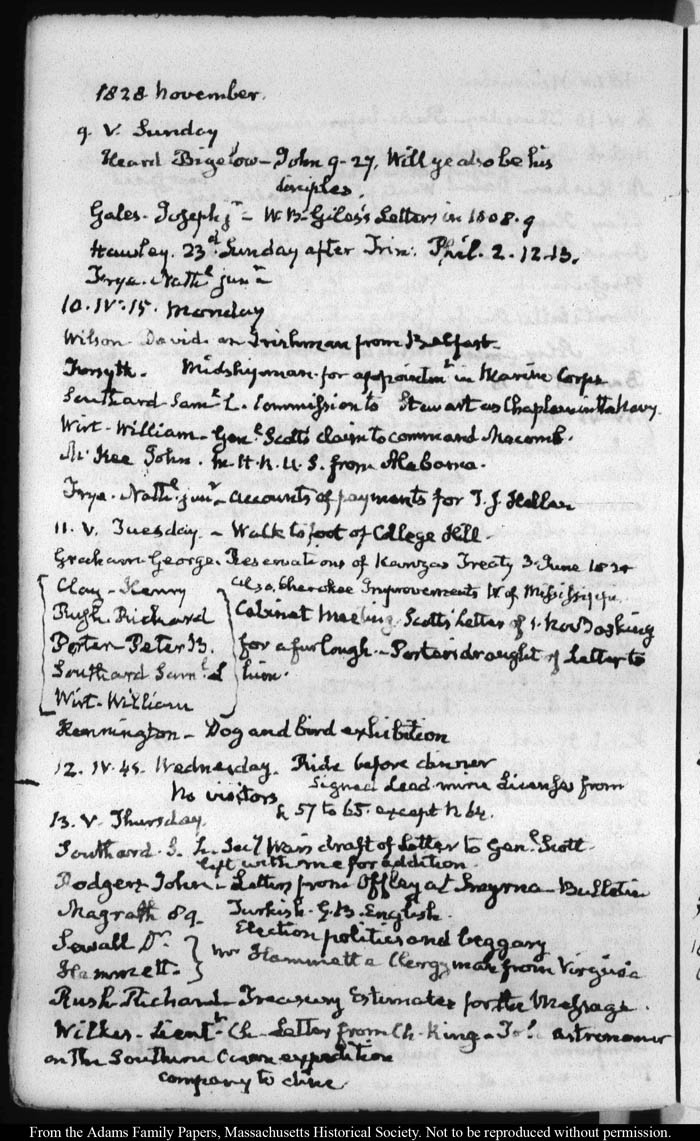 1828 November.
9. V. Sunday
Heard Bigelow – John 9-27. Will ye also be his
disciples.
Gales. Joseph jr – W B. Giles's Letters in 1808. 9
Hawley. 23d. Sunday after Trin: Phil. 2. 12. 13.
Frye. Nathl junr
10. IV. 15. Monday
Wilson David. an Irishman from Belfast.
Forsyth. Midshipman. for appointmt in Marine Corps
Southard Saml L. Commission to Stewart as Chaplain in the Navy.
Wirt. William – Genl Scott's claim to command Macomb.
McKee John. M.H.R.U.S. from Alabama.
Frye. Nathl. junr – accounts of payments for T. J. Hellen
11. V. Tuesday – Walk to foot of College Hill.
Graham George. Reservations of Kanzas Treaty 3. June 1825
also, Cherokee Improvements W of Mississippi.
Clay – Henry
Rush. Richard
Porter – Peter B.
Southard Saml. L
Wirt – William
Cabinet Meeting. Scott's Letter of 1. Nov asking
for a furlough. – Porter's draught of Letter to
him.
Kennington – Dog and bird exhibition
12. IV. 45. Wednesday. Ride before dinner
No visitors
Signed Lead mine Licenses from
& 57 to 65. except N 64.
13. V. Thursday
Southard. S. L. Secy War's draft of Letter to Genl Scott.
left with me for addition.
Rodgers John – Letters from Offley at Smyrna – Bulletin
Turkish. G. B. English.
Magrath 89. Election politics and beggary
Sewall Dr.
Hammett.
Mr Hammett a Clergyman from Virginia
Rush Richard – Treasury Estimates for the Message.
Wilkes – Lieutt Ch – Letter from Ch. King – To be astronomer
on the Southern Ocean expedition
company to dine.
From the Adams Family Papers, Massachusetts Historical Society. Not to be reproduced without permission.